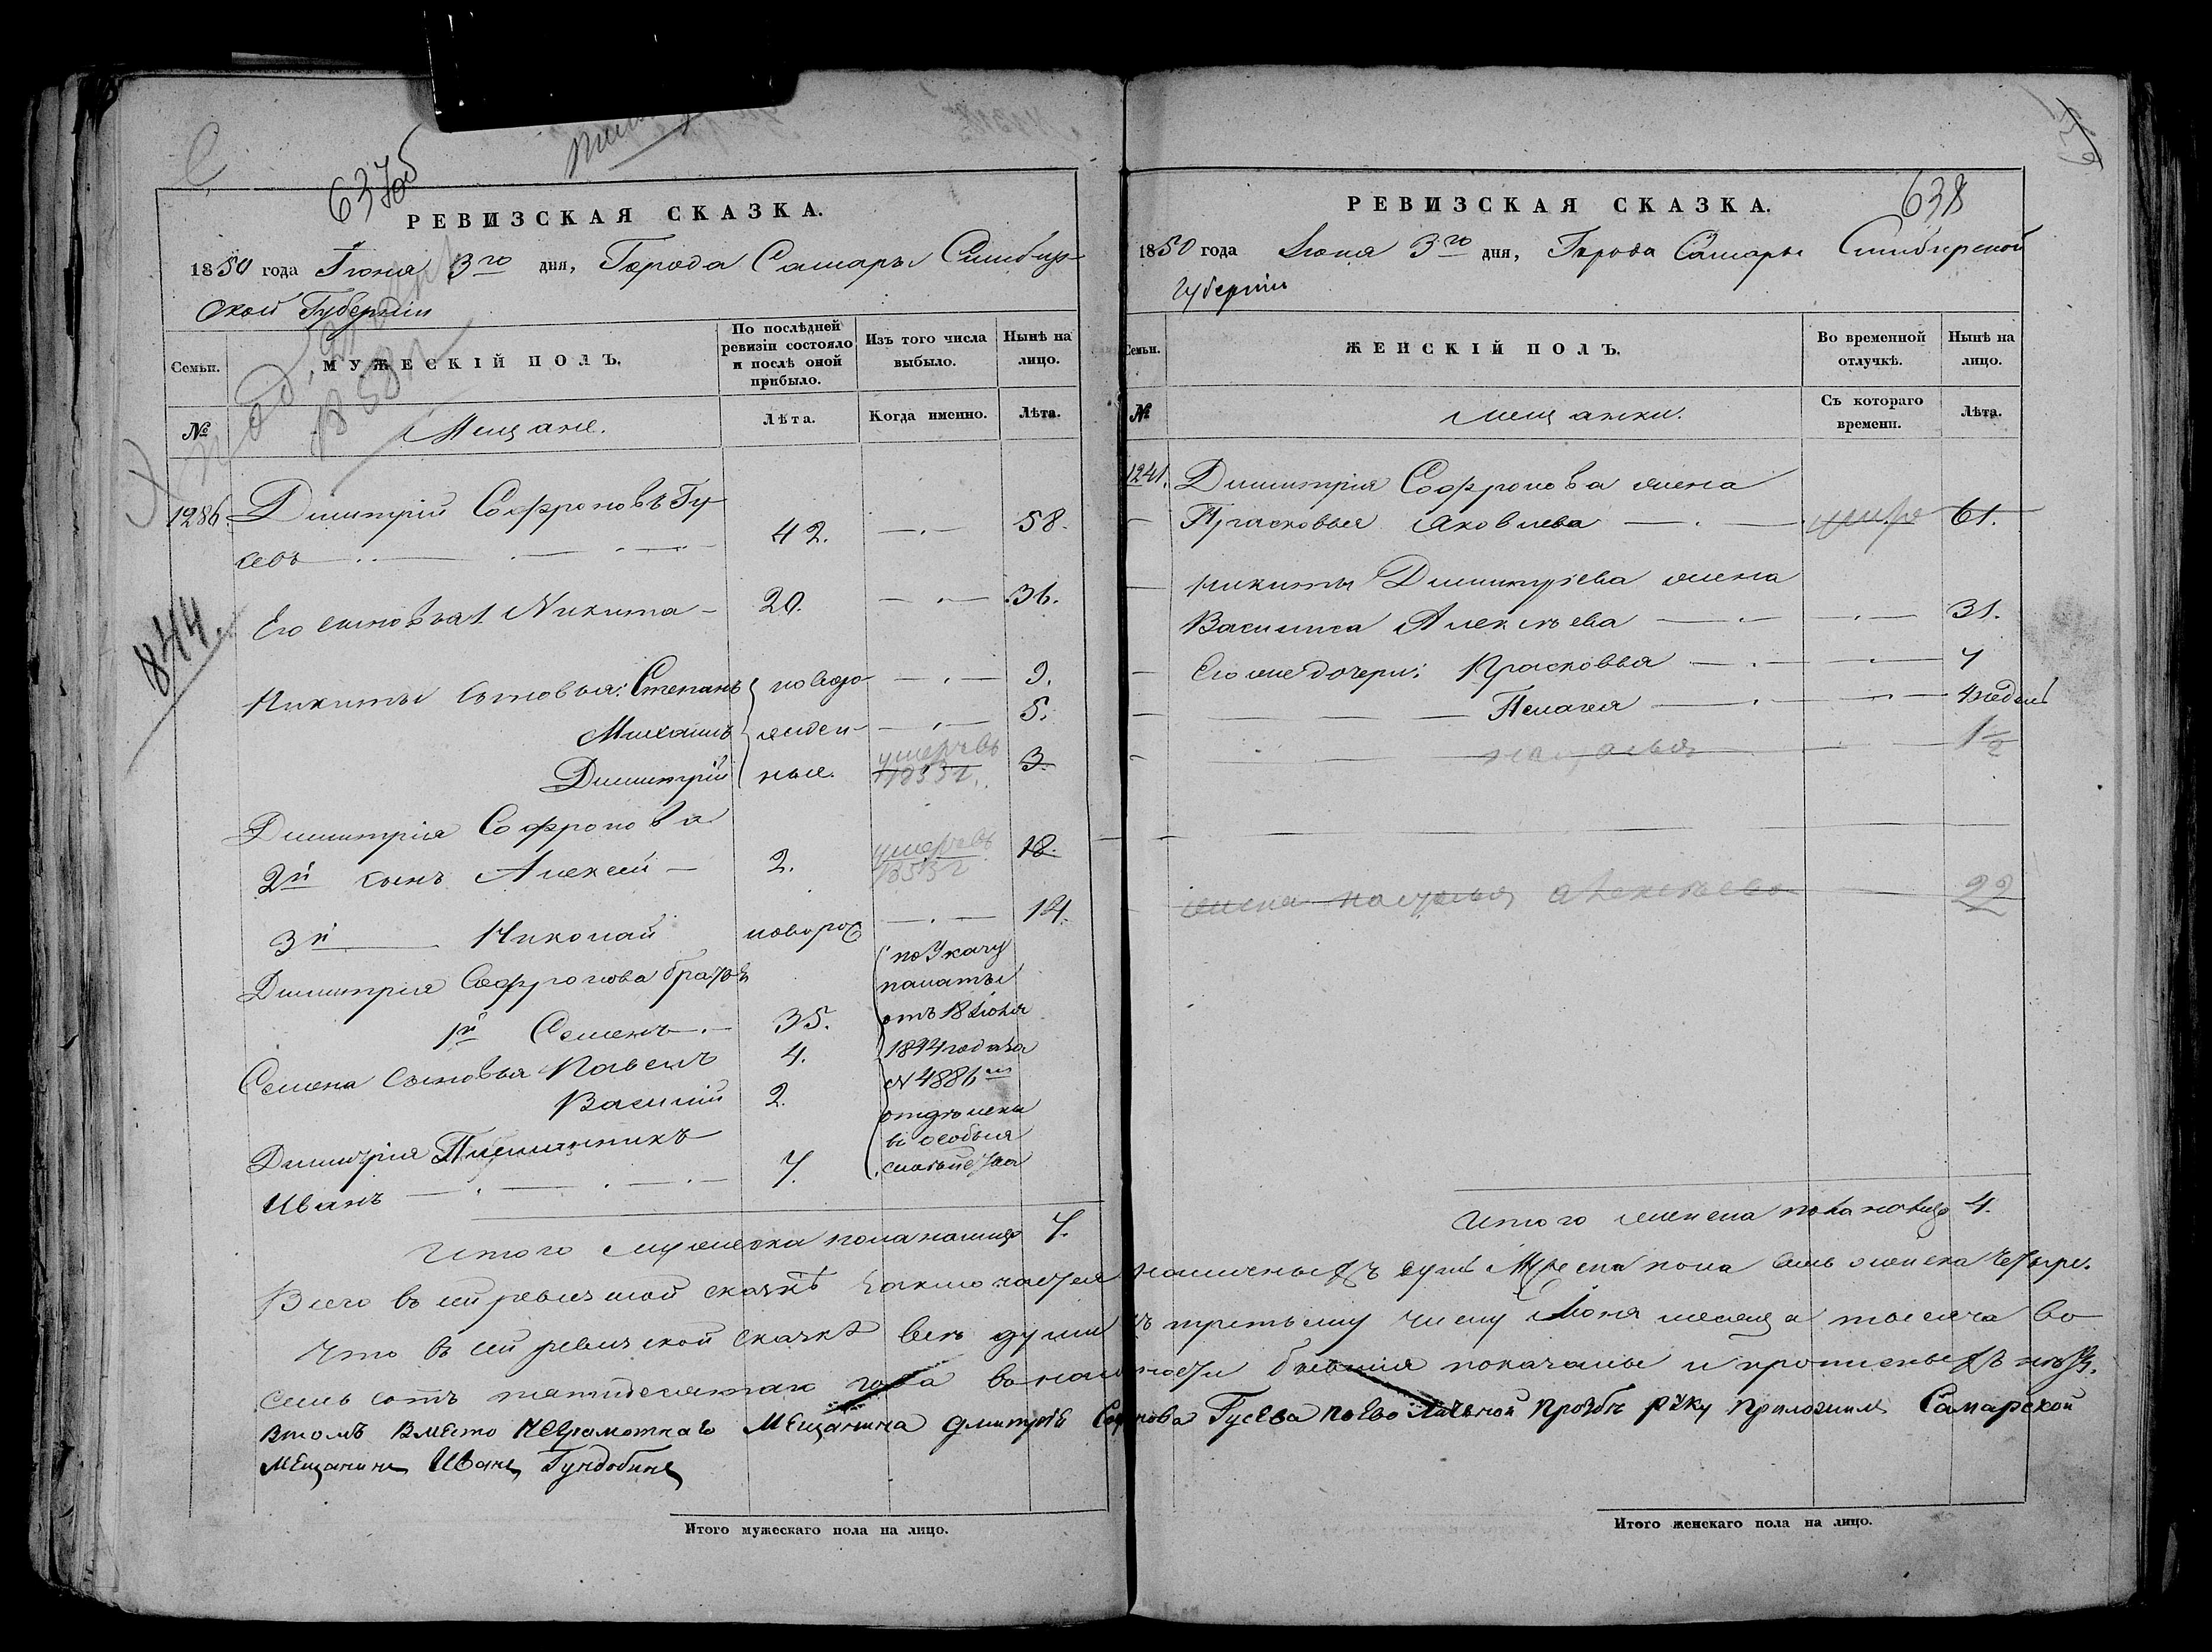 637об
РЕВИЗСКАЯ СКАЗКА.
1850 года Іюня 3го дня, Города Самары Симбир-
ской Губерніи
Семьи.
МУЖЕСКІЙ ПОЛЪ.
По послѣдней ревизіи состояло и послѣ оной прибыло.
Изъ того числа выбыло.
Нынѣ на лицо.
№
Мещане.
Лѣта.
Когда именно.
Лѣта.
1286. Димитрій Софроновъ Гу-
севъ 42. 58.
844.
Его сыновья 1 Никита 20. 36.
Никиты сыновья: Степанъ новоро- 9.
Михаилъ жден- 5.
Димитрій ные. умеръ въ 1853 г. 3.
Димитрія Софронова
2й сынъ Алексей 2. умеръ въ 1853 г 18.
3й Николай новорож 14.
Димитрія Софронова братья
1й Семенъ 35.
Семена сыновья Павелъ 4.
Василій 2.
Димитрія Племянникъ
Иванъ 7.
по Указу
палаты
отъ 18 Іюня
1844 года за
№ 4886м
отделены
въ особыя
семейства
Итого мужеска пола налицо 7.
Итого мужескаго пола на лицо.
638
РЕВИЗСКАЯ СКАЗКА.
1850 года Іюня 3го дня, Города Самары Симбирской
Губерніи
Семьи.
ЖЕНСКІЙ ПОЛЪ.
Во временной отлучкѣ.
Нынѣ на лицо.
№
Мещанки.
Съ котораго времени.
Лѣта.
1241. Димитрія Софронова жена
Прасковья Яковлева умер 61.
Никиты Димитріева жена
Василиса Алексѣева 31.
Ево же дочери: Прасковья 7
Пелагея 4 недель
Наталья 1½
жена Наталья Алексѣева 22
Итого женска пола налицо 4.
Всего въ сей ревизской сказкѣ заключается наличныхъ душъ Мужеска пола семь женска четыре.
Что въ сей ревизской сказкѣ все души къ третьему числу Іюня месяца тысяча во-
семь сотъ пятидесятаго года въ наличности бывшія показаны и прописныхъ нѣтъ.
Втомъ Вместо Неграмотнаго Мещанина Дмитріе Софронова Гусева поево Личьной прозбе руку приложилъ Самарской
Мещанинъ Иванъ Гундобинъ
Итого женскаго пола на лицо.